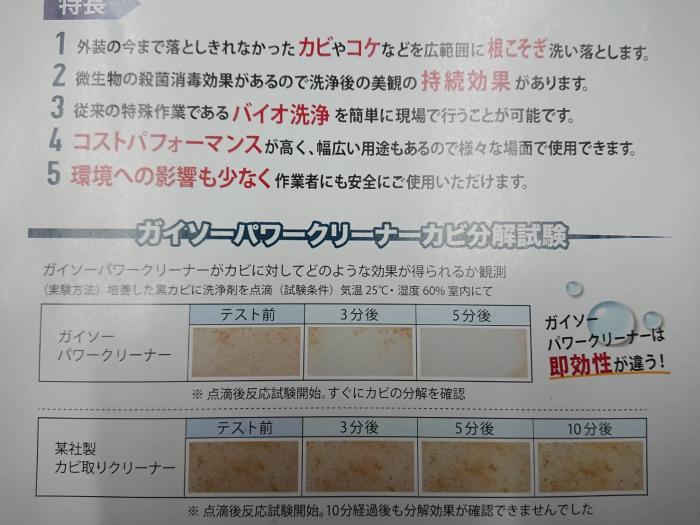 特長
1 外装の今まで落としきれなかったカビやコケなどを広範囲に根こそぎ洗い落とします。
2 微生物の殺菌消毒効果があるので洗浄後の美観の持続効果があります。
3 従来の特殊作業であるバイオ洗浄を簡単に現場で行うことが可能です。
4 コストパフォーマンスが高く、幅広い用途もあるので様々な場面で使用できます。
5 環境への影響も少なく作業者にも安全にご使用いただけます。
ガイソーパワークリーナーカビ分解試験
ガイソーパワークリーナーがカビに対してどのような効果が得られるか観測
(実験方法)培養した黒カビに洗浄剤を点滴(試験条件)気温25℃・湿度60% 室内にて
テスト前 3分後 5分後
ガイソー
パワークリーナー
※ 点滴後反応試験開始。すぐにカビの分解を確認
ガイソー
パワークリーナーは
即効性が違う!
テスト前 3分後 5分後 10分後
某社製
カビ取りクリーナー
※ 点滴後反応試験開始。10分経過後も分解効果が確認できませんでした